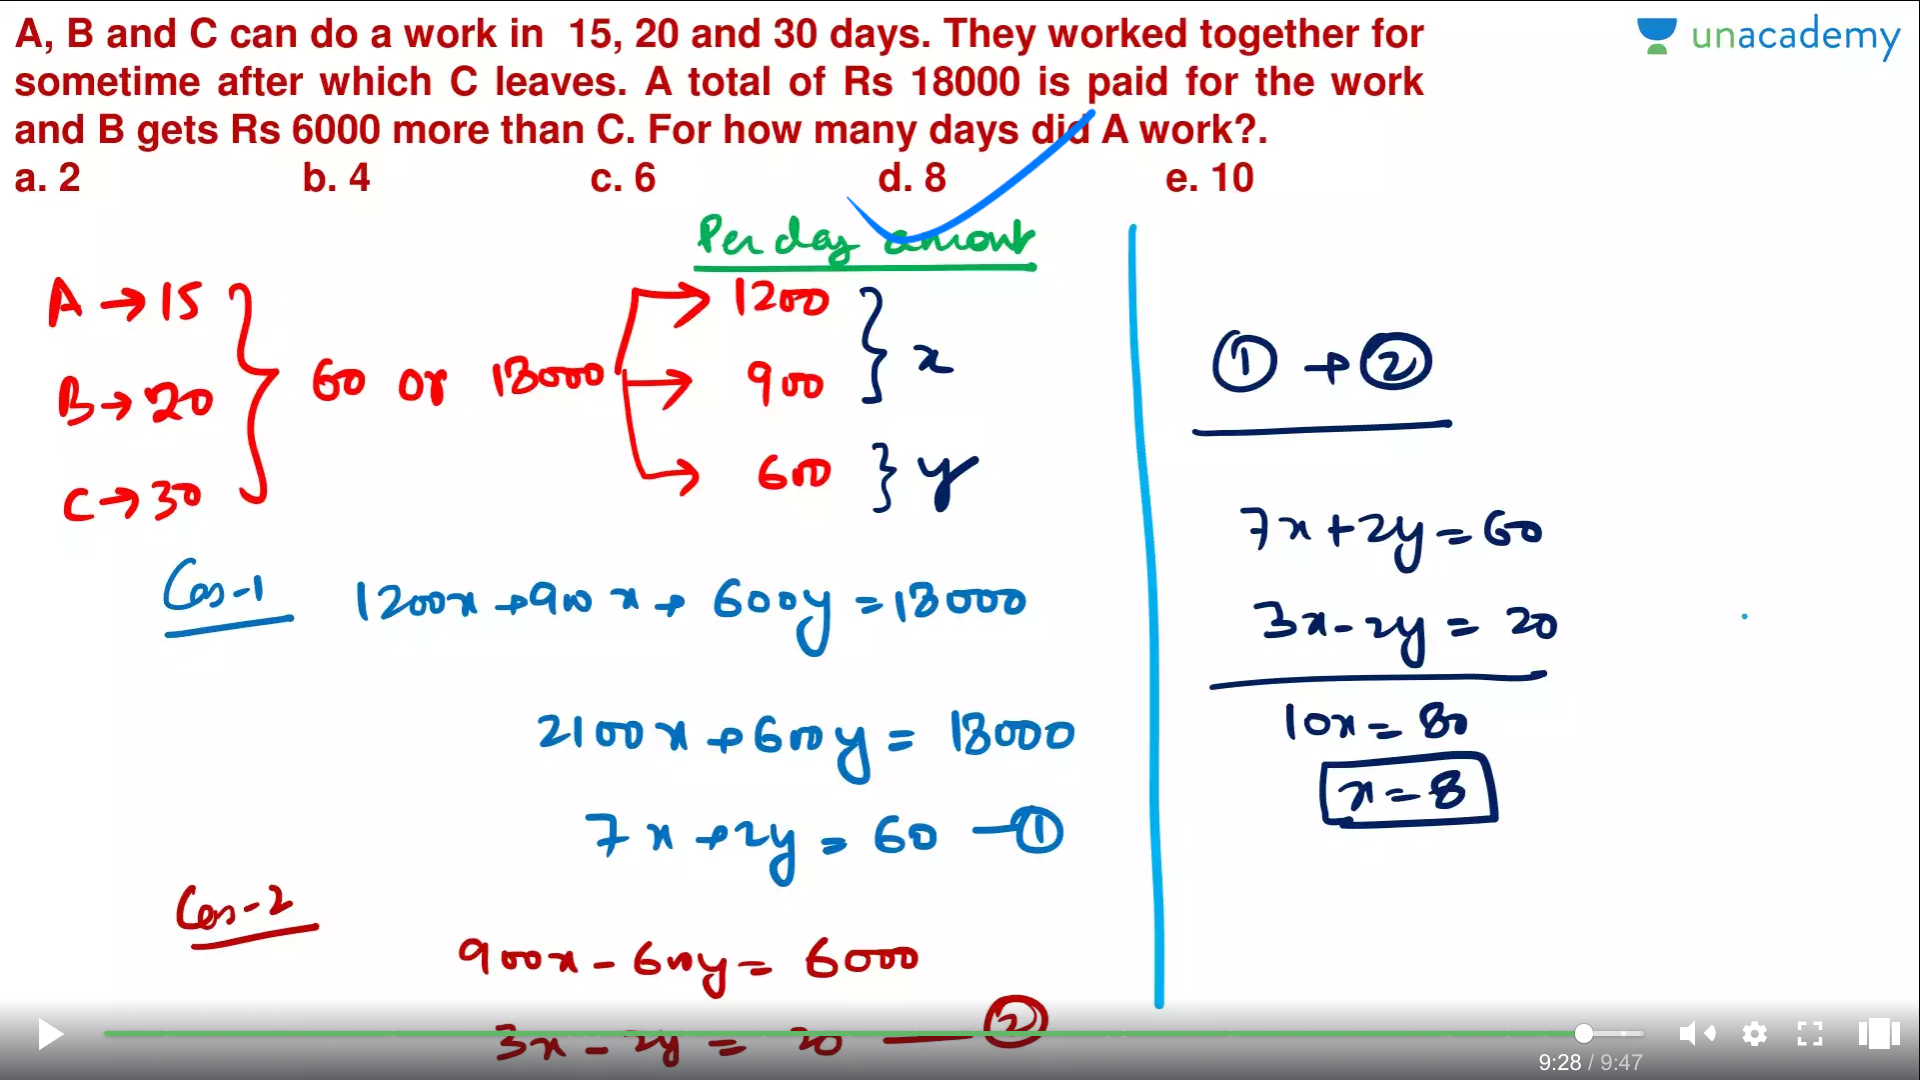 A, B and C can do a work in 15, 20 and 30 days. They worked together for
sometime after which C leaves. A total of Rs 18000 is paid for the work
and B gets Rs 6000 more than C. For how many days did A work?.
a. 2 b. 4 c. 6 d. 8 e. 10
unacademy
Per day amount
A → 15
B → 20
C → 30
60 or 18000
1200
900
600
x
y
Cas-1
1200x + 900x + 600y = 18000
2100x + 600y = 18000
7x + 2y = 60 — ①
Cas-2
900x - 600y = 6000
3x - 2y = 20 — ②
① + ②
7x + 2y = 60
3x - 2y = 20
10x = 80
x = 8
9:28 / 9:47